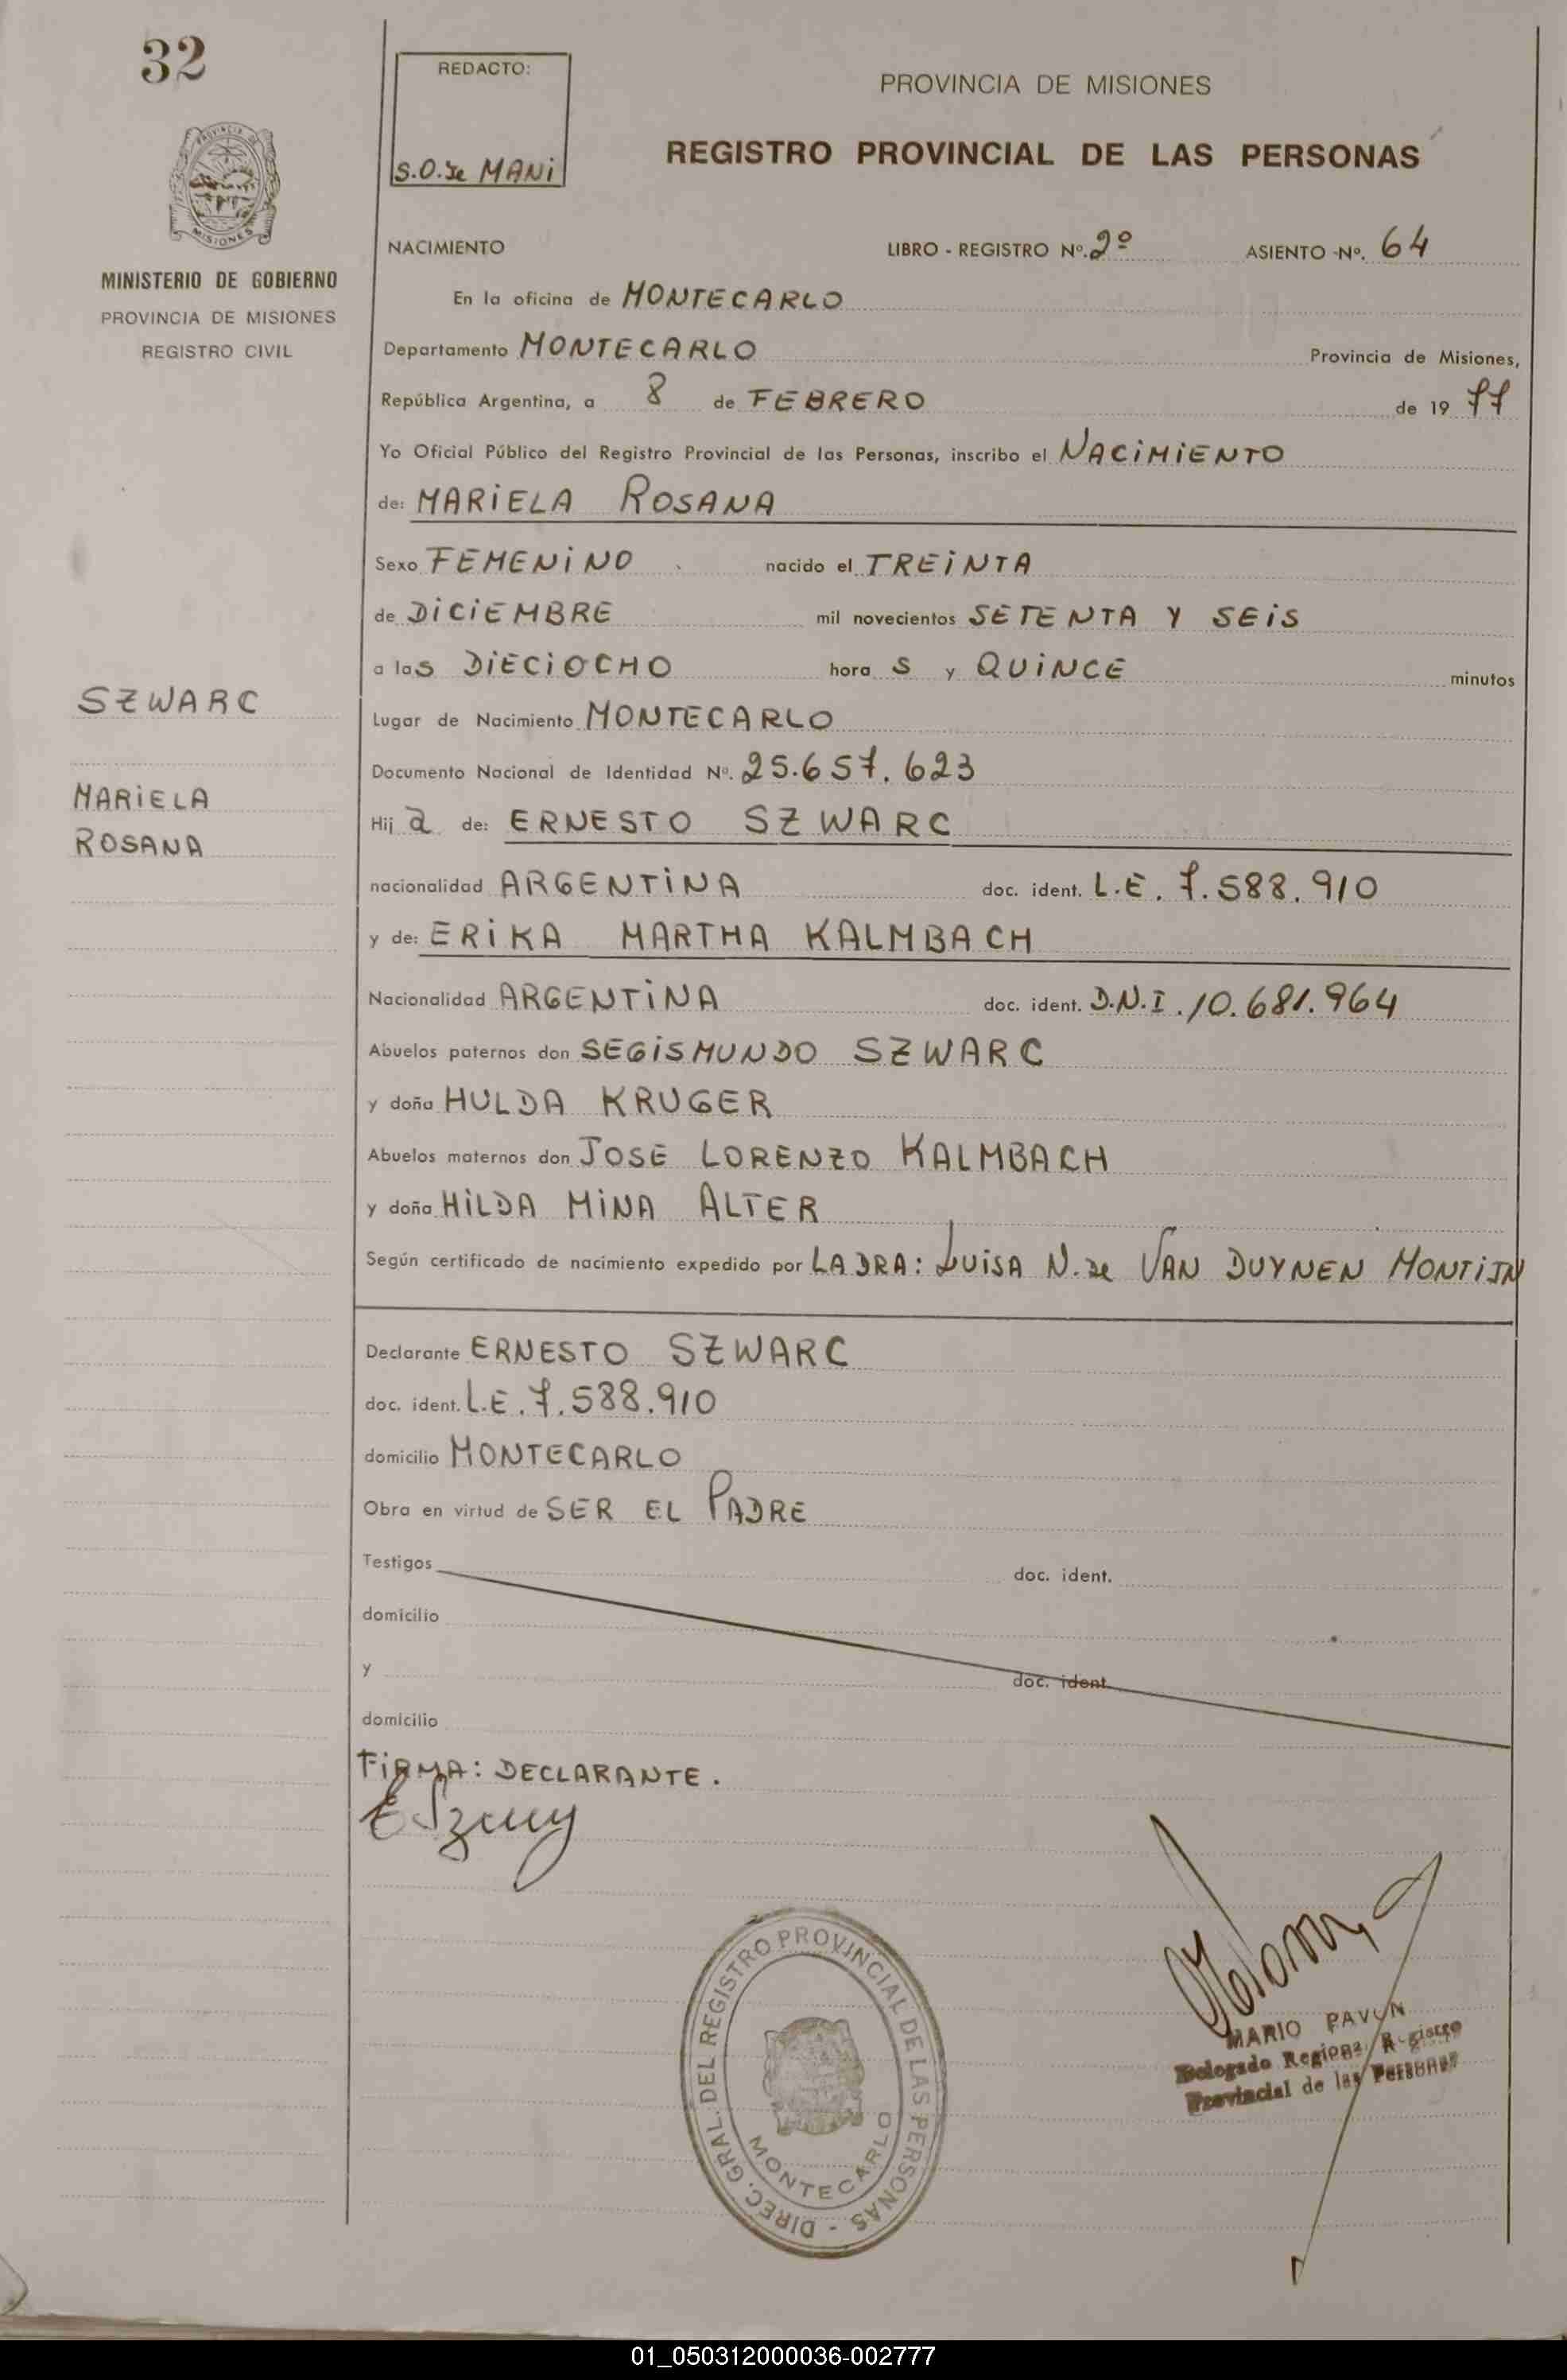 32
REDACTO:
S.O. de MANi
PROVINCIA DE MISIONES
REGISTRO PROVINCIAL DE LAS PERSONAS
PROVINCIA DE
MISIONES
MINISTERIO DE GOBIERNO
PROVINCIA DE MISIONES
REGISTRO CIVIL
NACIMIENTO LIBRO - REGISTRO Nº. 2º ASIENTO Nº. 64
En la oficina de MONTECARLO
Departamento MONTECARLO Provincia de Misiones,
República Argentina, a 8 de FEBRERO de 19 77
Yo Oficial Público del Registro Provincial de las Personas, inscribo el NACiMiENTO
de: MARiELA ROSANA
Sexo FEMENiNO nacido el TREiNTA
de DiCiEMBRE mil novecientos SETENTA Y SEiS
a las DiECiOCHO hora S y QUiNCE minutos
SZWARC
MARiELA
ROSANA
Lugar de Nacimiento MONTECARLO
Documento Nacional de Identidad Nº. 25.657.623
Hij a de: ERNESTO SZWARC
nacionalidad ARGENTiNA doc. ident. L.E. 7.588.910
y de: ERiKA MARTHA KALMBACH
Nacionalidad ARGENTiNA doc. ident. D.N.I. 10.681.964
Abuelos paternos don SEGiSMUNDO SZWARC
y doña HULDA KRUGER
Abuelos maternos don JOSE LORENZO KALMBACH
y doña HiLDA MiNA ALTER
Según certificado de nacimiento expedido por LA DRA: LUiSA N. de VAN DUYNEN MONTiJN
Declarante ERNESTO SZWARC
doc. ident. L.E. 7.588.910
domicilio MONTECARLO
Obra en virtud de SER EL PADRE
Testigos doc. ident.
domicilio
y doc. ident.
domicilio
FiRMA: DECLARANTE.
DIREC. GRAL. DEL REGISTRO PROVINCIAL DE LAS PERSONAS -
MONTECARLO
MARIO PAVON
Delegado Regional Registro
Provincial de las Personas
01_050312000036-002777